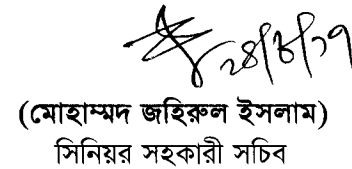 ২৪/৮/১৭
(মোহাম্মদ জহিরুল ইসলাম)
সিনিয়র সহকারী সচিব